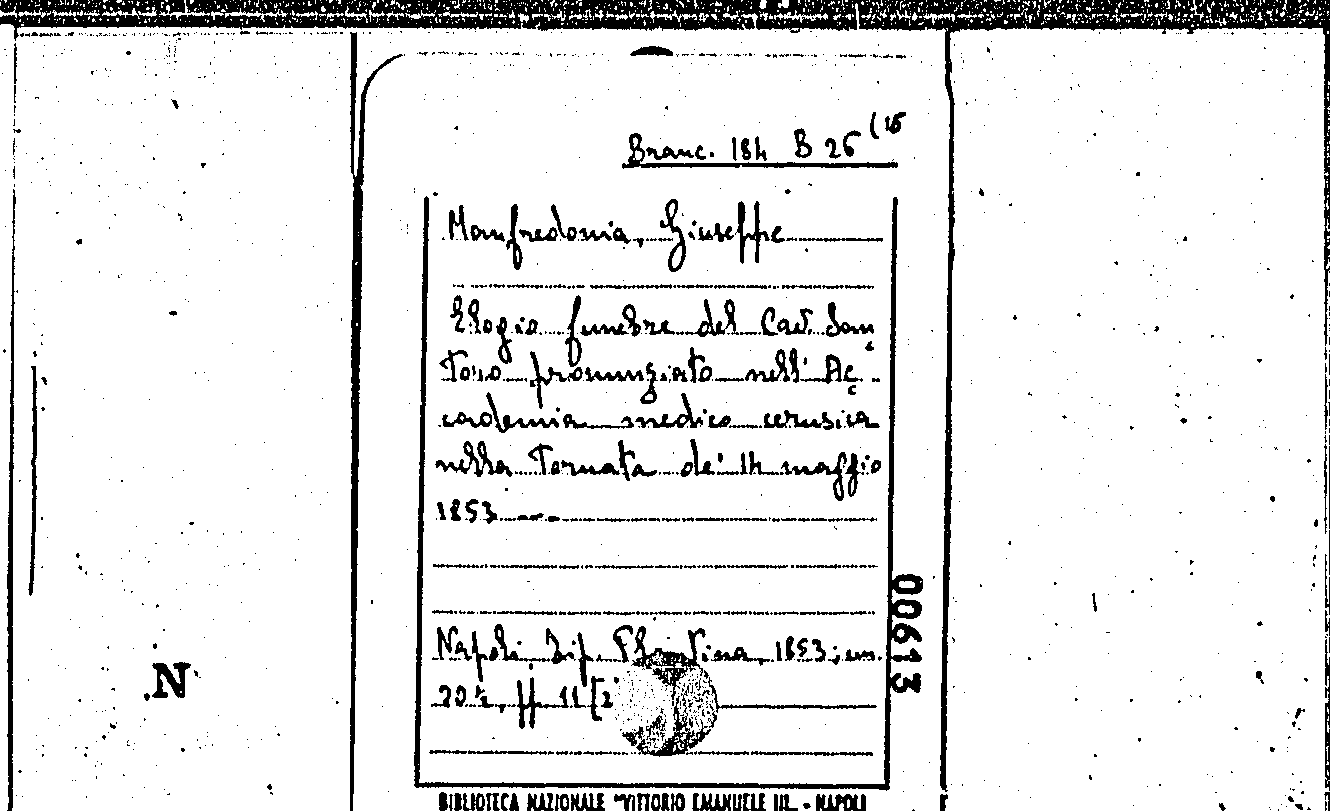 Branc. 184 B 26 (16
Manfredonia, Giuseppe
Elogio funebre del Cav. San
toro pronunziato nell'Ac
cademia medico cerusica
nella Tornata de' 14 maggio
1853
Napoli, Tip. 1853; cm.
20½, pp. 11 [2
00613
N
BIBLIOTECA NAZIONALE "VITTORIO EMANUELE III" - NAPOLI